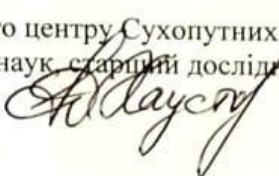 го центру Сухопутних
наук, старший дослід